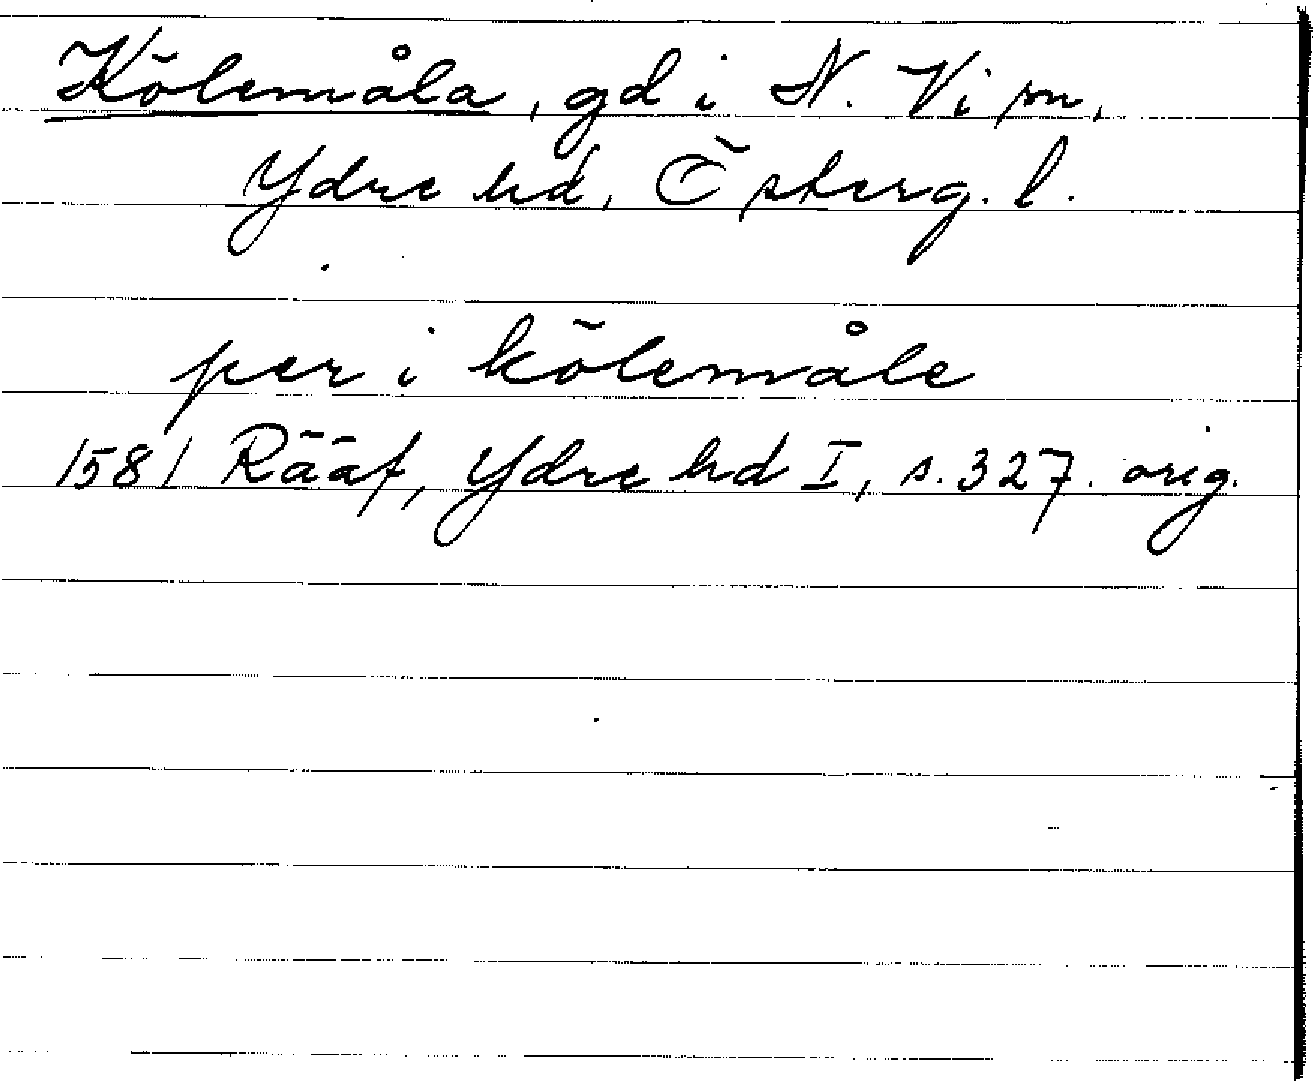 Kölemåla, gd i N. Vi sn,
Ydre hd, Österg. l.
per i kölemåle
1581 Rääf, Ydre hd I, s. 327. orig.